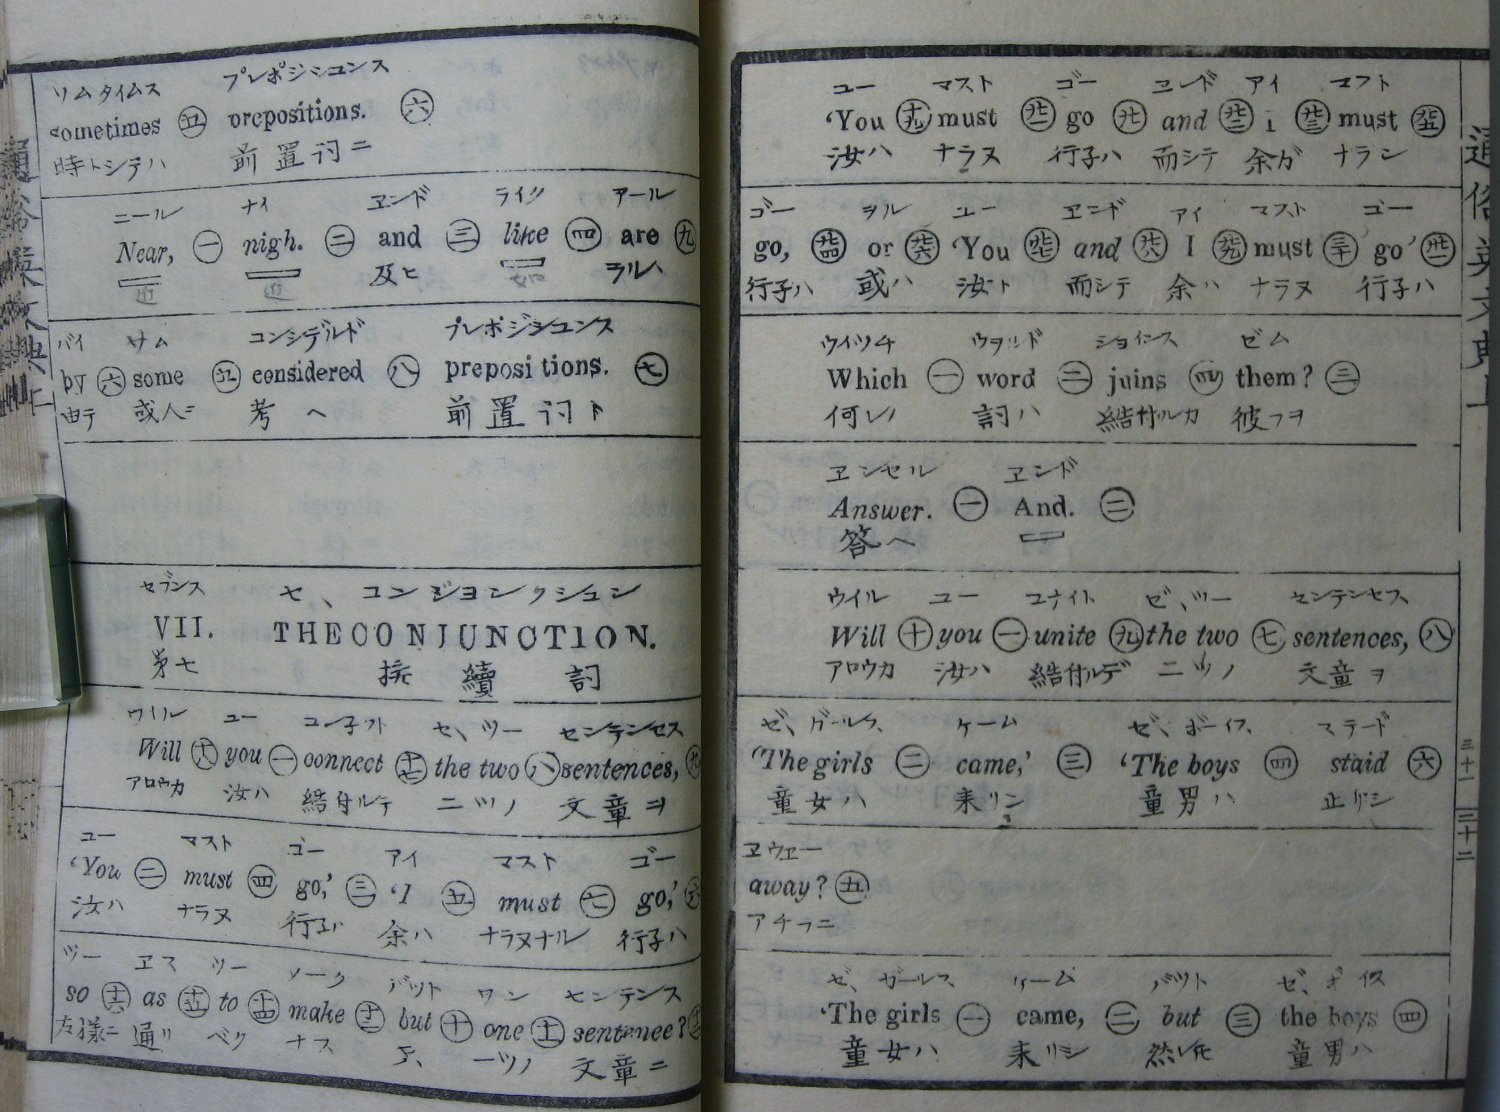 ソムタイムス プレポジシユンス
sometimes ㊄ prepositions. ㊅
時トシテハ 前置詞ニ
ニール ナイ ヱンド ライク アール
Near, ㊀ nigh. ㊁ and ㊂ like ㊃ are ㊈
近 近 及ヒ 如 ラルヽ
バイ サム コンシデルド プレポジシユンス
by ㊅ some ㊄ considered ㊇ prepositions. ㊆
由テ 或人ニ 考ヘ 前置詞ト
セブンス セ、コンジヨンクシユン
VII. THE CONJUNCTION.
第七 接續詞
ウイル ユー コン子クト セ、ツー センテンセス
Will you ㊀ connect the two ㊇ sentences, ㊈
アロウカ 汝ハ 結付ルテ 二ツノ 文章ヲ
ユー マスト ゴー アイ マスト ゴー
'You ㊁ must ㊃ go,' ㊂ 'I ㊄ must ㊆ go,' ㊅
汝ハ ナラヌ 行子バ 余ハ ナラヌナル 行子ハ
ツー ヱス ツー メーク バツト ワン センテンス
so as to make but ㊉ one sentence?
左様ニ 通リ ベク ナス 一ツノ 文章ニ
ユー マスト ゴー ヱンド アイ マスト
'You must go and I must
汝ハ ナラヌ 行子ハ 而シテ 余ガ ナラン
ゴー ヲル ユー ヱンド アイ マスト ゴー
go, or 'You and I must go'
行子ハ 或ハ 汝ト 而シテ 余ハ ナラヌ 行子ハ
ウイツチ ウヲルド ジョインス ゼム
Which ㊀ word ㊁ joins ㊃ them? ㊂
何レノ 詞ハ 結付ルカ 彼ラヲ
ヱンセル ヱンド
Answer. ㊀ And. ㊁
答ヘ
ウイル ユー ユナイト ゼ、ツー センテンセス
Will ㊉ you ㊀ unite ㊈ the two ㊆ sentences, ㊇
アロウカ 汝ハ 結付ルデ 二ツノ 文章ヲ
ゼ、ガールス ケーム ゼ、ボーイス ステード
'The girls ㊁ came,' ㊂ 'The boys ㊃ staid ㊅
童女ハ 来リシ 童男ハ 止リシ
ヱウヱー
away? ㊄
アチラニ
ゼ、ガールス ケーム バツト ゼ、ボイス
'The girls ㊀ came, ㊁ but ㊂ the boys ㊃
童女ハ 来リシ 然レ𪜈 童男ハ
通俗英文典上
三十一 三十二